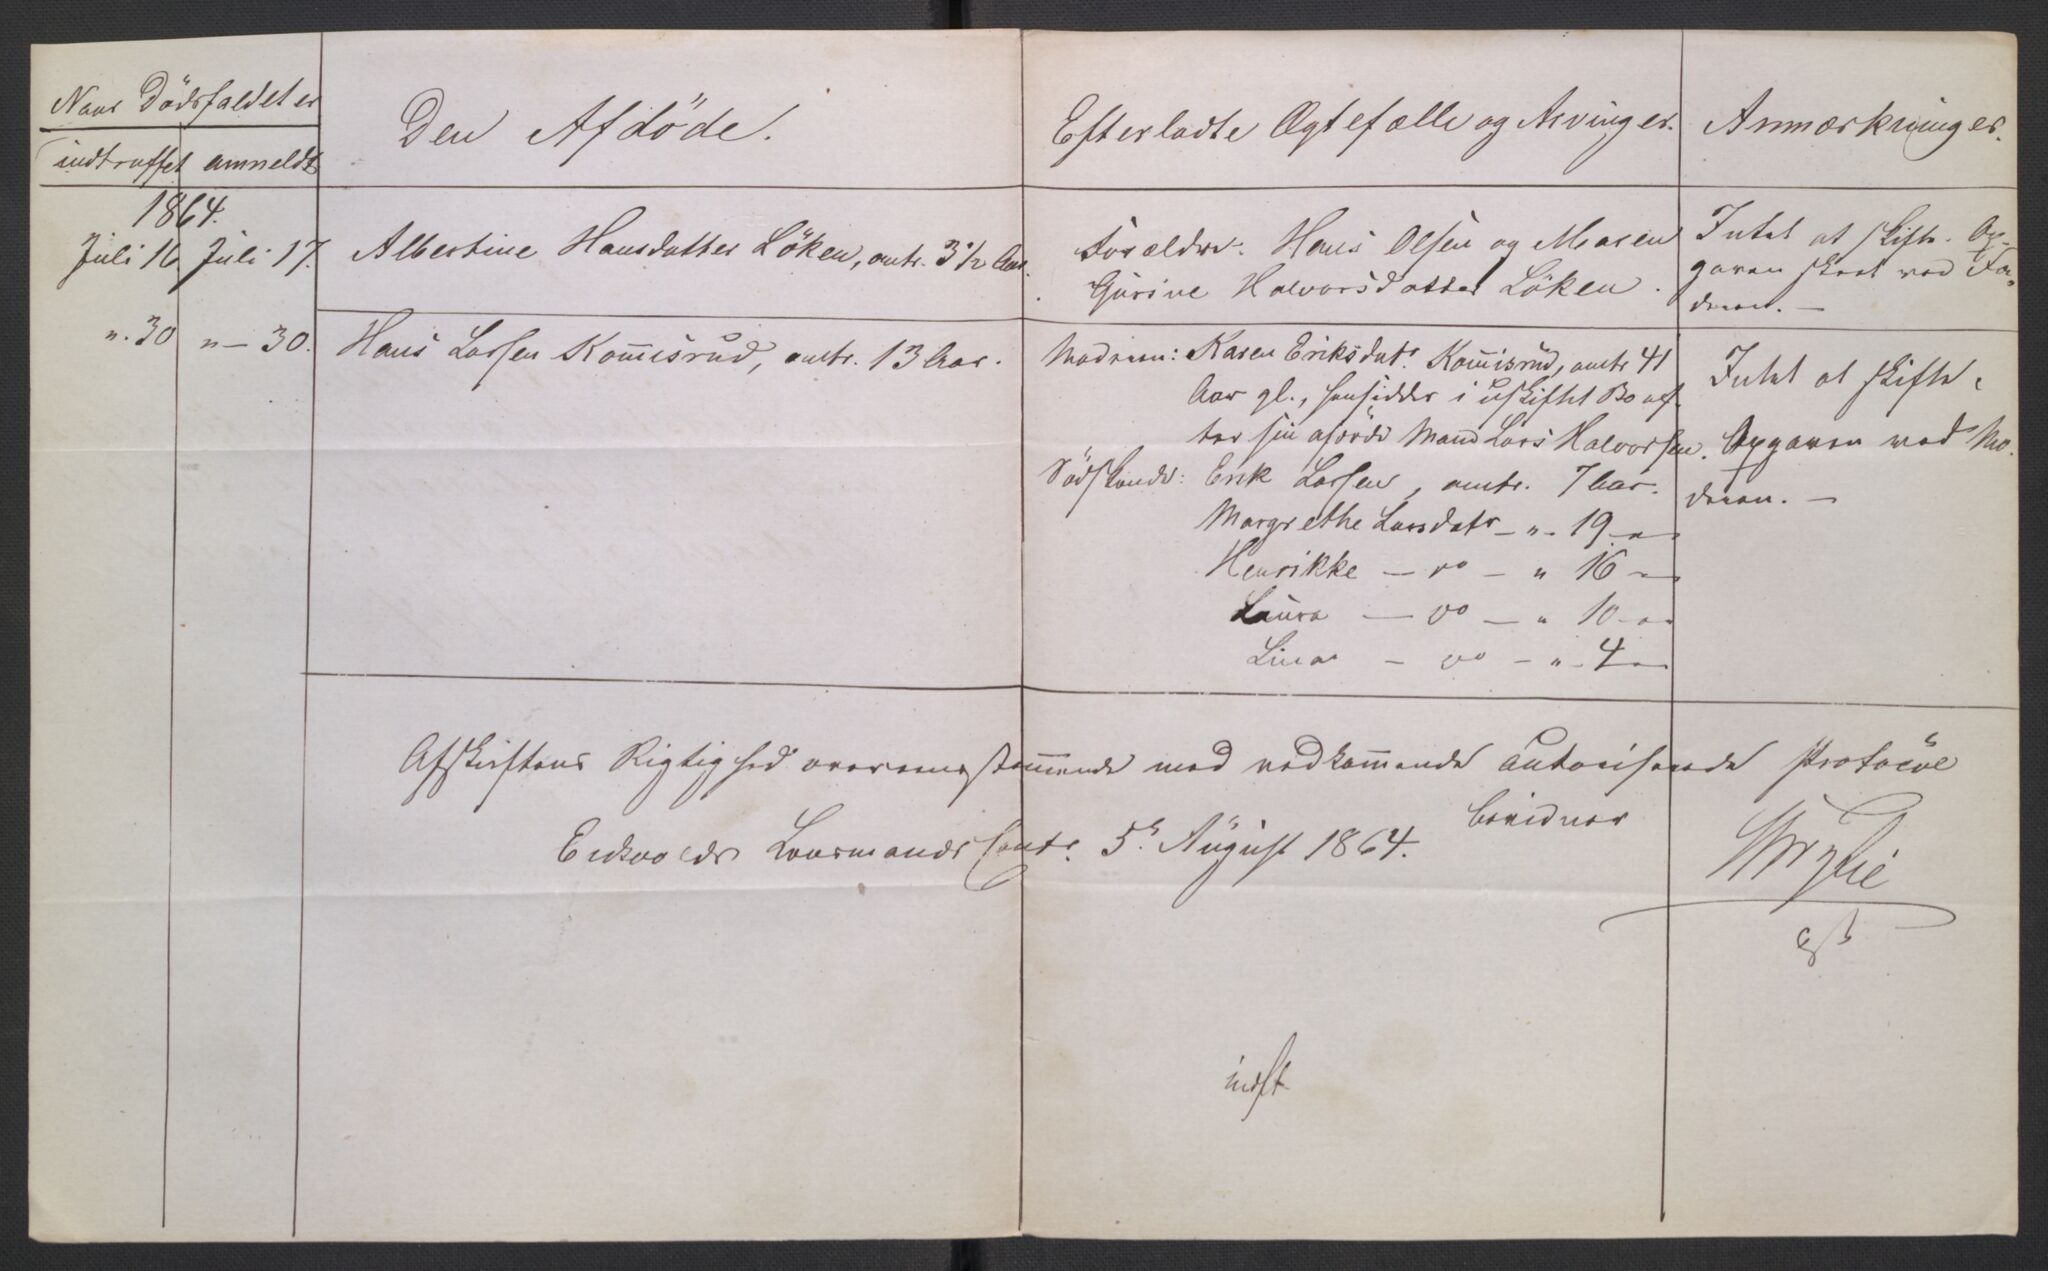 Naar Dödsfaldet er
indtruffet anmeldt
Den Afdöde.
Efterladte Ægtefælle og Arvinger.
Anmærkninger.
1864.
Juli 16 Juli 17.
Albertine Hansdatter Löken, omtr. 3 1/2 Aar.
Forældre: Hans Olsen og Maren
Gurine Halvorsdatter Löken.
Intet at skifte. Op-
gaven skeet ved Fa-
deren. —
" 30 " — 30.
Hans Larsen Kommisrud, omtr. 13 Aar.
Moderen: Karen Eriksdatr. Kommisrud, omtr 41
Aar gl., hensidder i uskiftet Bo ef-
ter sin afdöde Mand Lars Halvorsen.
Södskende: Erik Larsen, omtr. 7 Aar.
Margrethe Larsdatr — " - 19 — "
Henrikke — do — " 16 — "
Laura — do — " 10 — "
Lina — do — " - 4 — "
Intet at skifte.
Opgaven ved Mo-
deren. —
Afskriftens Rigtighed overeensstemmende med vedkommende autoriserede Protocol
bevidner
Eidsvolds Lensmands Contr. 5te August 1864.
indft